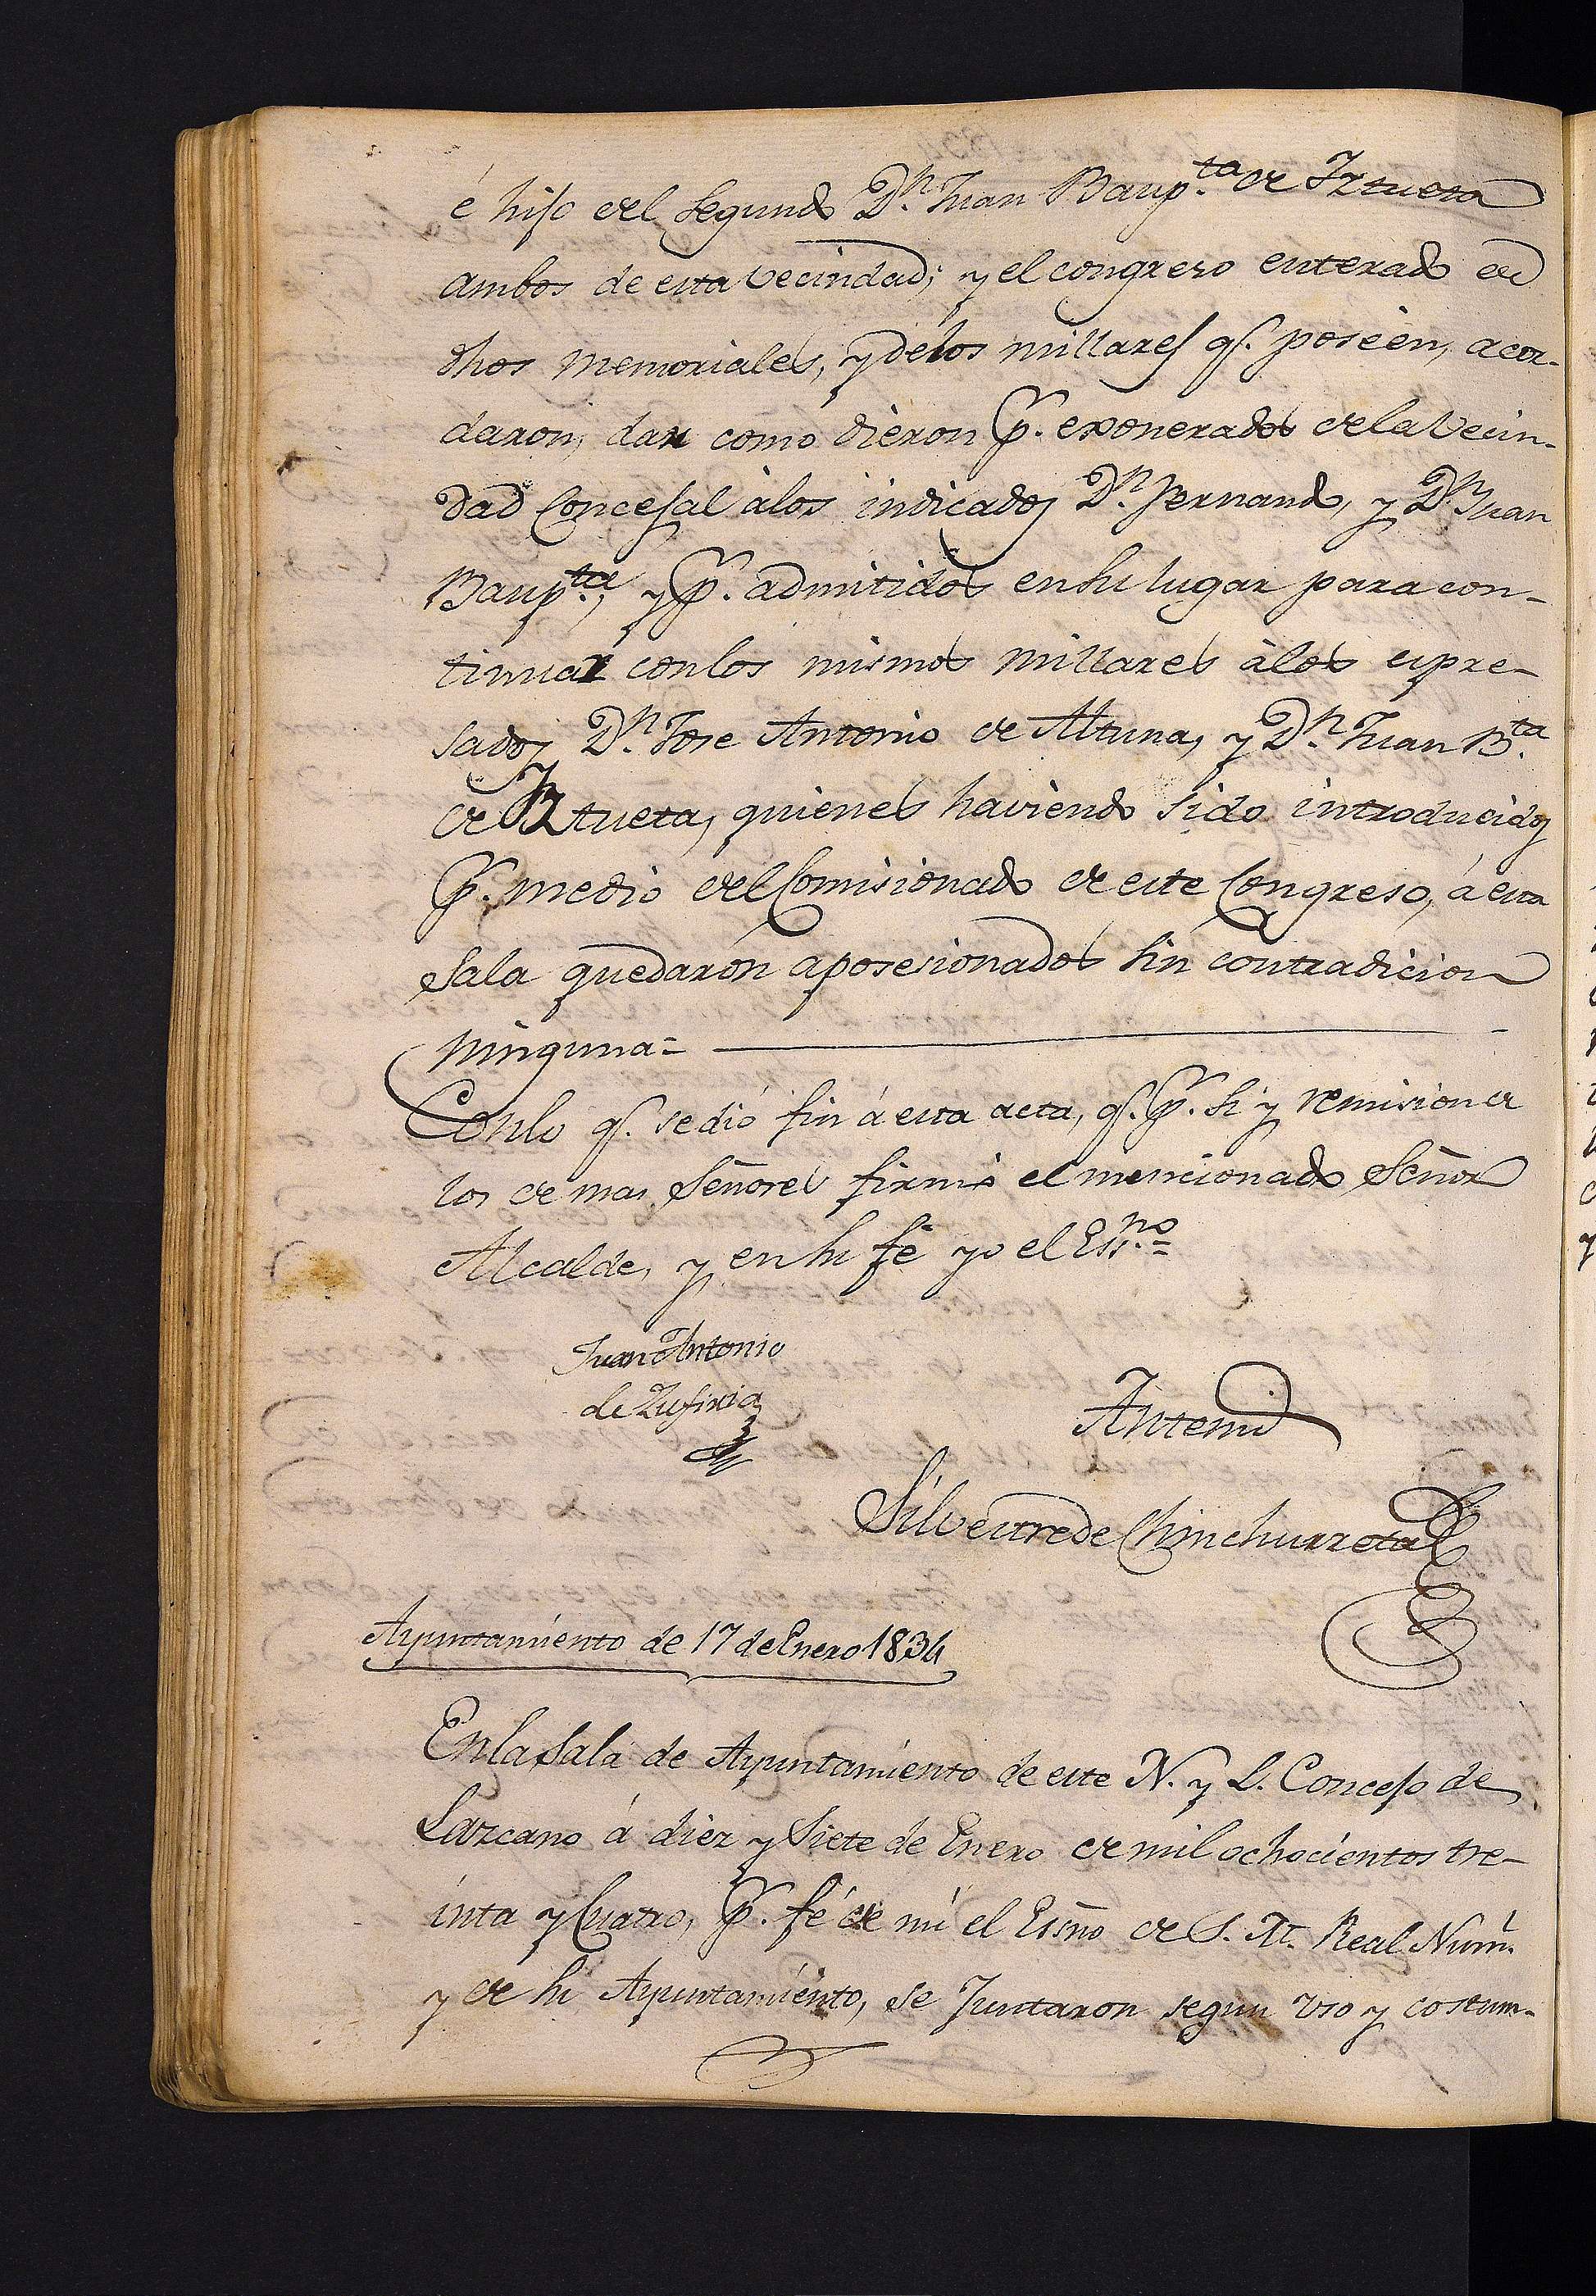 é hijo del segundo Dn. Juan Baupta. de Iztueta
ambos de esta vecindad; y el congreso enterado de
dhos memoriales, y de los millares q. posèen, acor-
daron, dar como dieron p. exonerados de la vecin-
dad Concejal àlos indicados Dn. Fernando, y Dn. Juan
Baupta., y p. admitidos en su lugar para con-
tinuar con los mismos millares àlos expre-
sados Dn. Jose Antonio de Altuna, y Dn. Juan Bta.
de Iztueta, quienes haviendo sido introducidos
p. medio del Comisionado de este Congreso, á esta
Sala quedaron aposesionados sin contradicion
ninguna=
Conlo q. se dió fin á esta acta, q. p. si y remision de
los de mas Señores firmó el mencionado Señor
Alcalde, y en su fé yo el Essno.=
Juan Antonio
de Zufiria
Antemi
Silvestre de Chinchurreta
Ayuntamiento de 17 de Enero 1834
En la Sala de Ayuntamiento de este N. y L. Concejo de
Lazcano á diez y Siete de Enero de mil ochocientos tre-
inta y Cuatro, p. fé de mi el Essno de S. M. Real Num.
y de su Ayuntamiento, se Juntaron segun uso y costum-